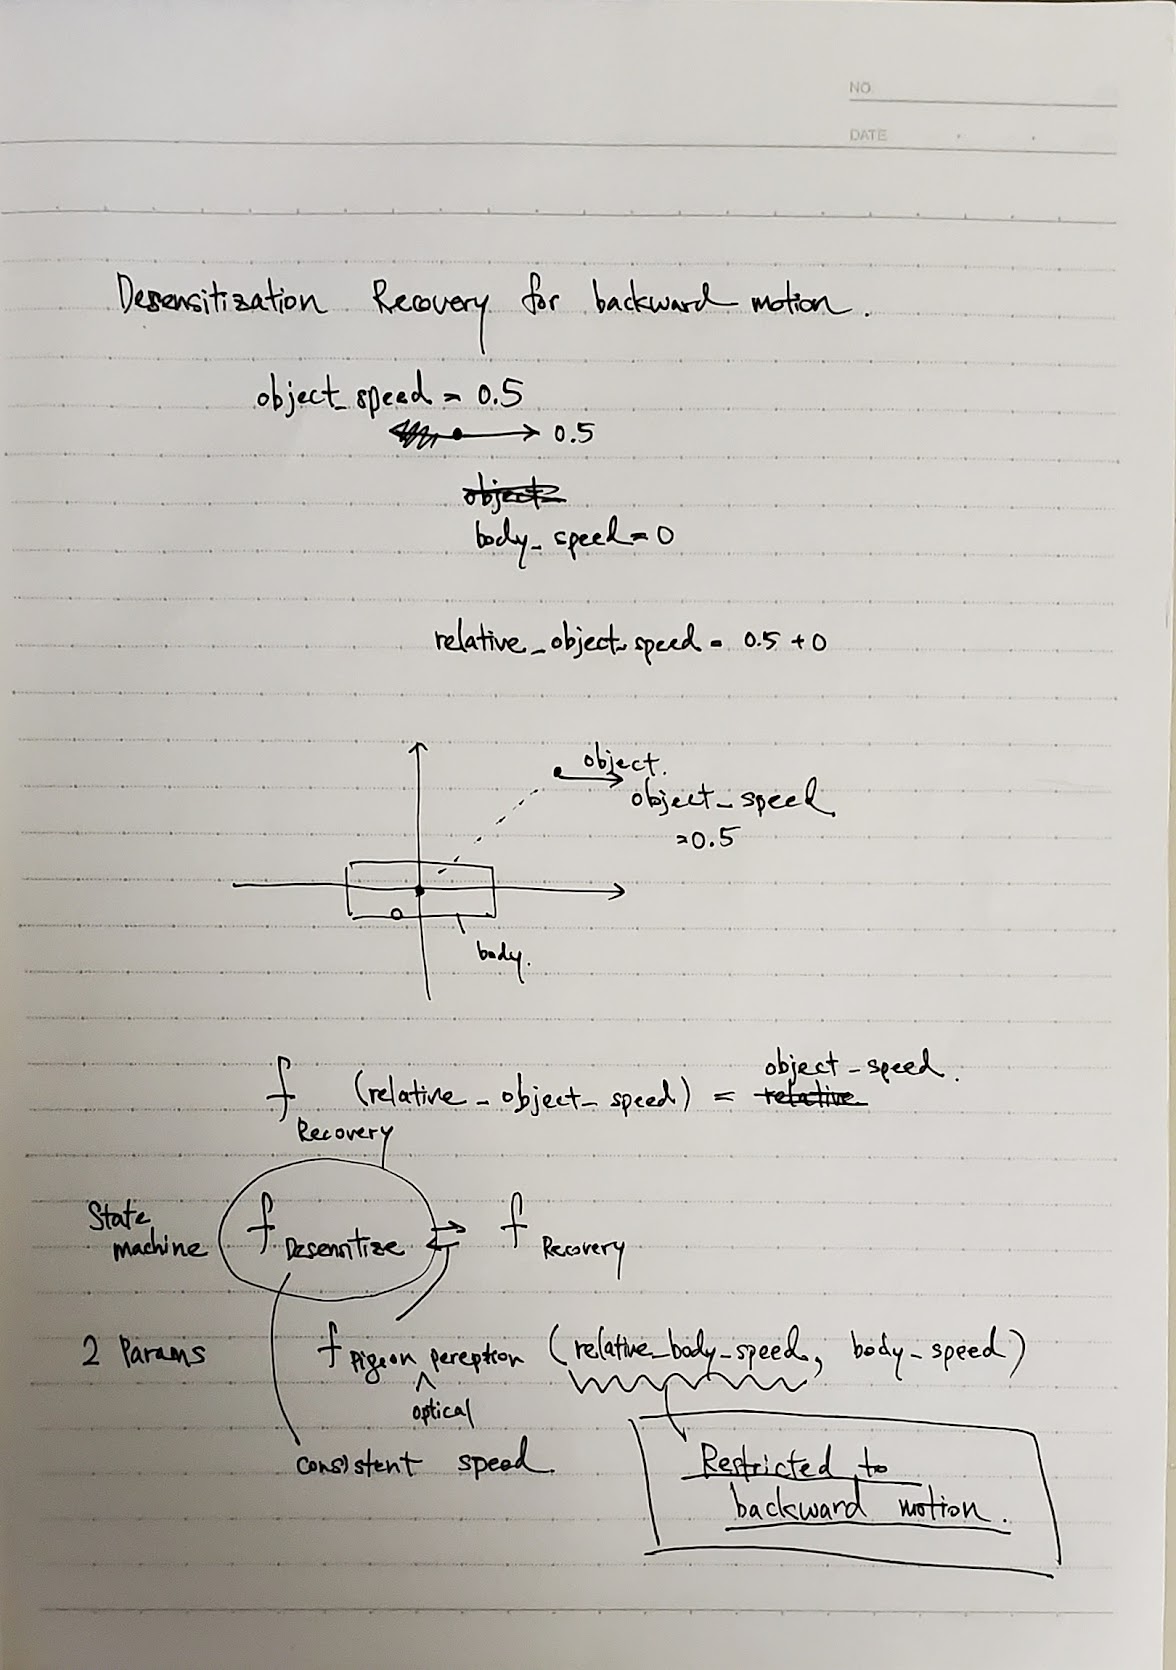 NO.
DATE
Desensitization Recovery for backward motion.
object_speed = 0.5
0.5
object
body_speed = 0
relative_object_speed = 0.5 + 0
object.
object_speed
= 0.5
body.
object_speed.
f Recovery (relative_object_speed) = relative
State machine
f Desensitize ⇄ f Recovery
2 Params
f pigeon perception (relative_body_speed, body_speed)
^
optical
consistent speed.
Restricted to
backward motion.